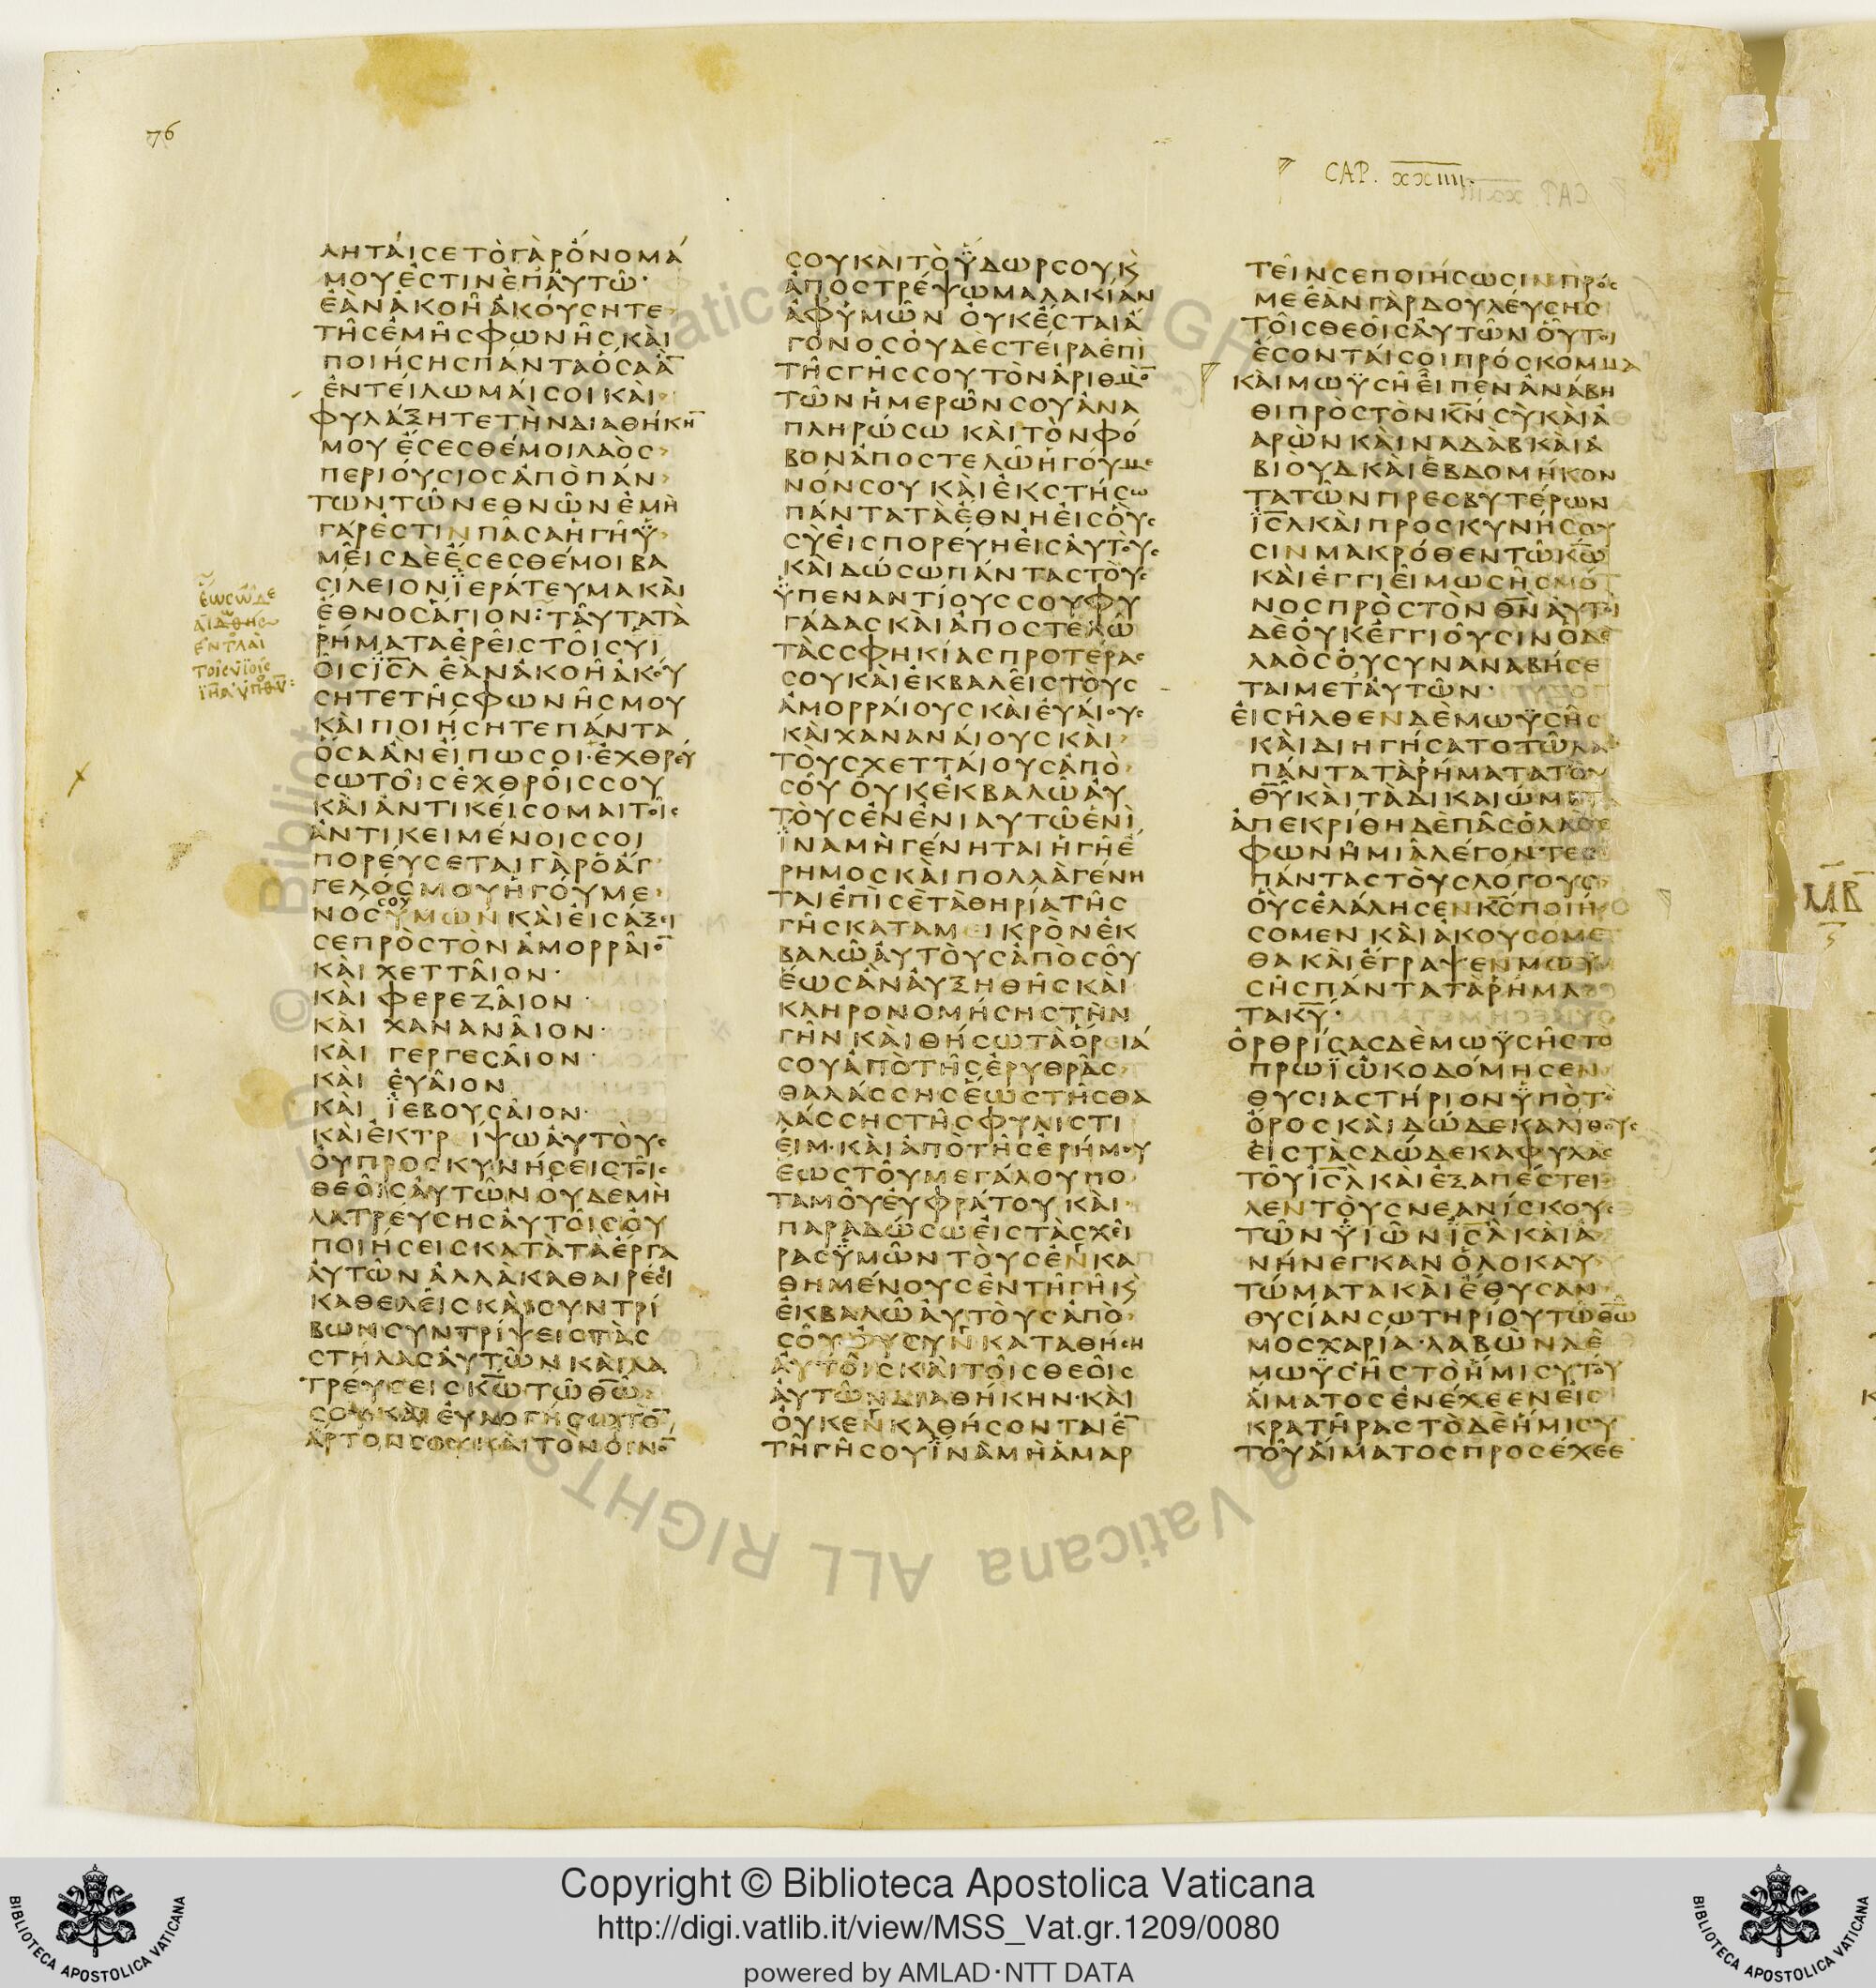 76
CAP. XXIIII.
ληται σε το γαρ ονομα
μου εστιν επ αυτω·
εαν ακοη ακουσητε
της εμης φωνης και
ποιησης παντα οσα α̅
εντειλωμαι σοι και
φυλαξητε την διαθηκη̅
μου εσεσθε μοι λαος
περιουσιος απο παν
των των εθνων εμη
γαρ εστιν πασα η γη ϋ
μεις δε εσεσθε μοι βα
σιλειον ϊερατευμα και
εθνος αγιον: ταυτα τα
ρηματα ερεις τοις υι
οις ι̅σ̅λ̅ εαν ακοη ακου
σητε της φωνης μου
και ποιησητε παντα
οσα αν ειπω σοι· εχθρευ
σω τοις εχθροις σου
και αντικεισομαι τοις
αντικειμενοις σοι
πορευσεται γαρ ο αγ
γελος μου ηγουμε
νος υμων και εισαξει
σου
σε προς τον αμορραιο̅
και χετταιον·
και φερεζαιον·
και χαναναιον·
και γεργεσαιον·
και ευαιον
και ϊεβουσαιον·
και εκτρ ιψω αυτους
ου προσκυνησεις τοις
θεοις αυτων ουδε μη
λατρευσης αυτοις ου
ποιησεις κατα τα εργα
αυτων αλλα καθαιρεσει
καθελεις και συντρι
βων συντριψεις τας
στηλας αυτων και λα
τρευσεις κ̅ω̅ τω θ̅ω̅
σου και ευλογησω το̅
αρτον σου και τον οινο̅
σου και το ϋδωρ σου κ̀
αποστρεψω μαλακιαν
αφ υμων ουκ εσται α
γονος ουδε στειρα επι
της γης σου τον αριθμο̅
των ημερων σου ανα
πληρωσω και τον φο
βον αποστελω ηγουμε
νον σου και εκστησω
παντα τα εθνη εις ους
συ εισπορευη εις αυτους
και δωσω παντας τους
ϋπεναντιους σου φυ
γαδας και αποστελω
τας σφηκιας προτερας
σου και εκβαλεις τους
αμορραιους και ευαιους
και χαναναιους και
τους χετταιους απο
σου ουκ εκβαλω αυ
τους εν ενιαυτω ενι
ϊνα μη γενηται η γη ε
ρημος και πολλα γενη
ται επι σε τα θηρια της
γης κατα μεικρον εκ
βαλω αυτους απο σου
εως αν αυξηθης και
κληρονομησης την
γην και θησω τα ορια
σου απο της ερυθρας
θαλασσης εως της θα
λασσης της φυλιστι
ειμ· και απο της ερημου
εως του μεγαλου πο
ταμου ευφρατου και
παραδωσω εις τας χει
ρας ϋμων τους ενκα
θημενους εν τη γη κ̀
εκβαλω αυτους απο
σου ου συνκαταθηση
αυτοις και τοις θεοις
αυτων διαθηκην· και
ουκ ενκαθησονται ε̅
τη γη σου ϊνα μη αμαρ
τειν σε ποιησωσιν προς
με εαν γαρ δουλευσης
τοις θεοις αυτων ουτοι
εσονται σοι προσκομμα
και μωϋση ειπεν αναβη
θι προς τον κ̅ν̅ συ και α
αρων και ναδαβ και α
βιουδ και εβδομηκον
τα των πρεσβυτερων
ι̅σ̅λ̅ και προσκυνησου
σιν μακροθεν τω κ̅ω̅
και εγγιει μωσης μο
νος προς τον θ̅ν̅ αυτοι
δε ουκ εγγιουσιν ο δε
λαος ου συναναβησε
ται μετ αυτων·
εισηλθεν δε μωϋσης
και διηγησατο τω λαω
παντα τα ρηματα του
θ̅υ̅ και τα δικαιωματα
απεκριθη δε πας ο λαος
φωνη μια λεγοντες
παντας τους λογους
ους ελαλησεν κ̅ς̅ ποιη
σομεν και ακουσομε
θα και εγραψεν μωϋ
σης παντα τα ρημα
τα κ̅υ̅·
ορθρισας δε μωϋσης το
πρωϊ ωκοδομησεν
θυσιαστηριον ϋπο το
ορος και δωδεκα λιθους
εις τας δωδεκα φυλας
του ι̅σ̅λ̅ και εξαπεστει
λεν τους νεανισκους
των ϋιων ι̅σ̅λ̅ και α
νηνεγκαν ολοκαυ
τωματα και εθυσαν
θυσιαν σωτηριου τω θ̅ω̅
μοσχαρια· λαβων δε
μωϋσης το ημισυ του
αιματος ενεχεεν εις
κρατηρας το δε ημισυ
του αιματος προσεχεε
Copyright © Biblioteca Apostolica Vaticana
http://digi.vatlib.it/view/MSS_Vat.gr.1209/0080
powered by AMLAD·NTT DATA
BIBLIOTECA APOSTOLICA VATICANA
BIBLIOTECA APOSTOLICA VATICANA